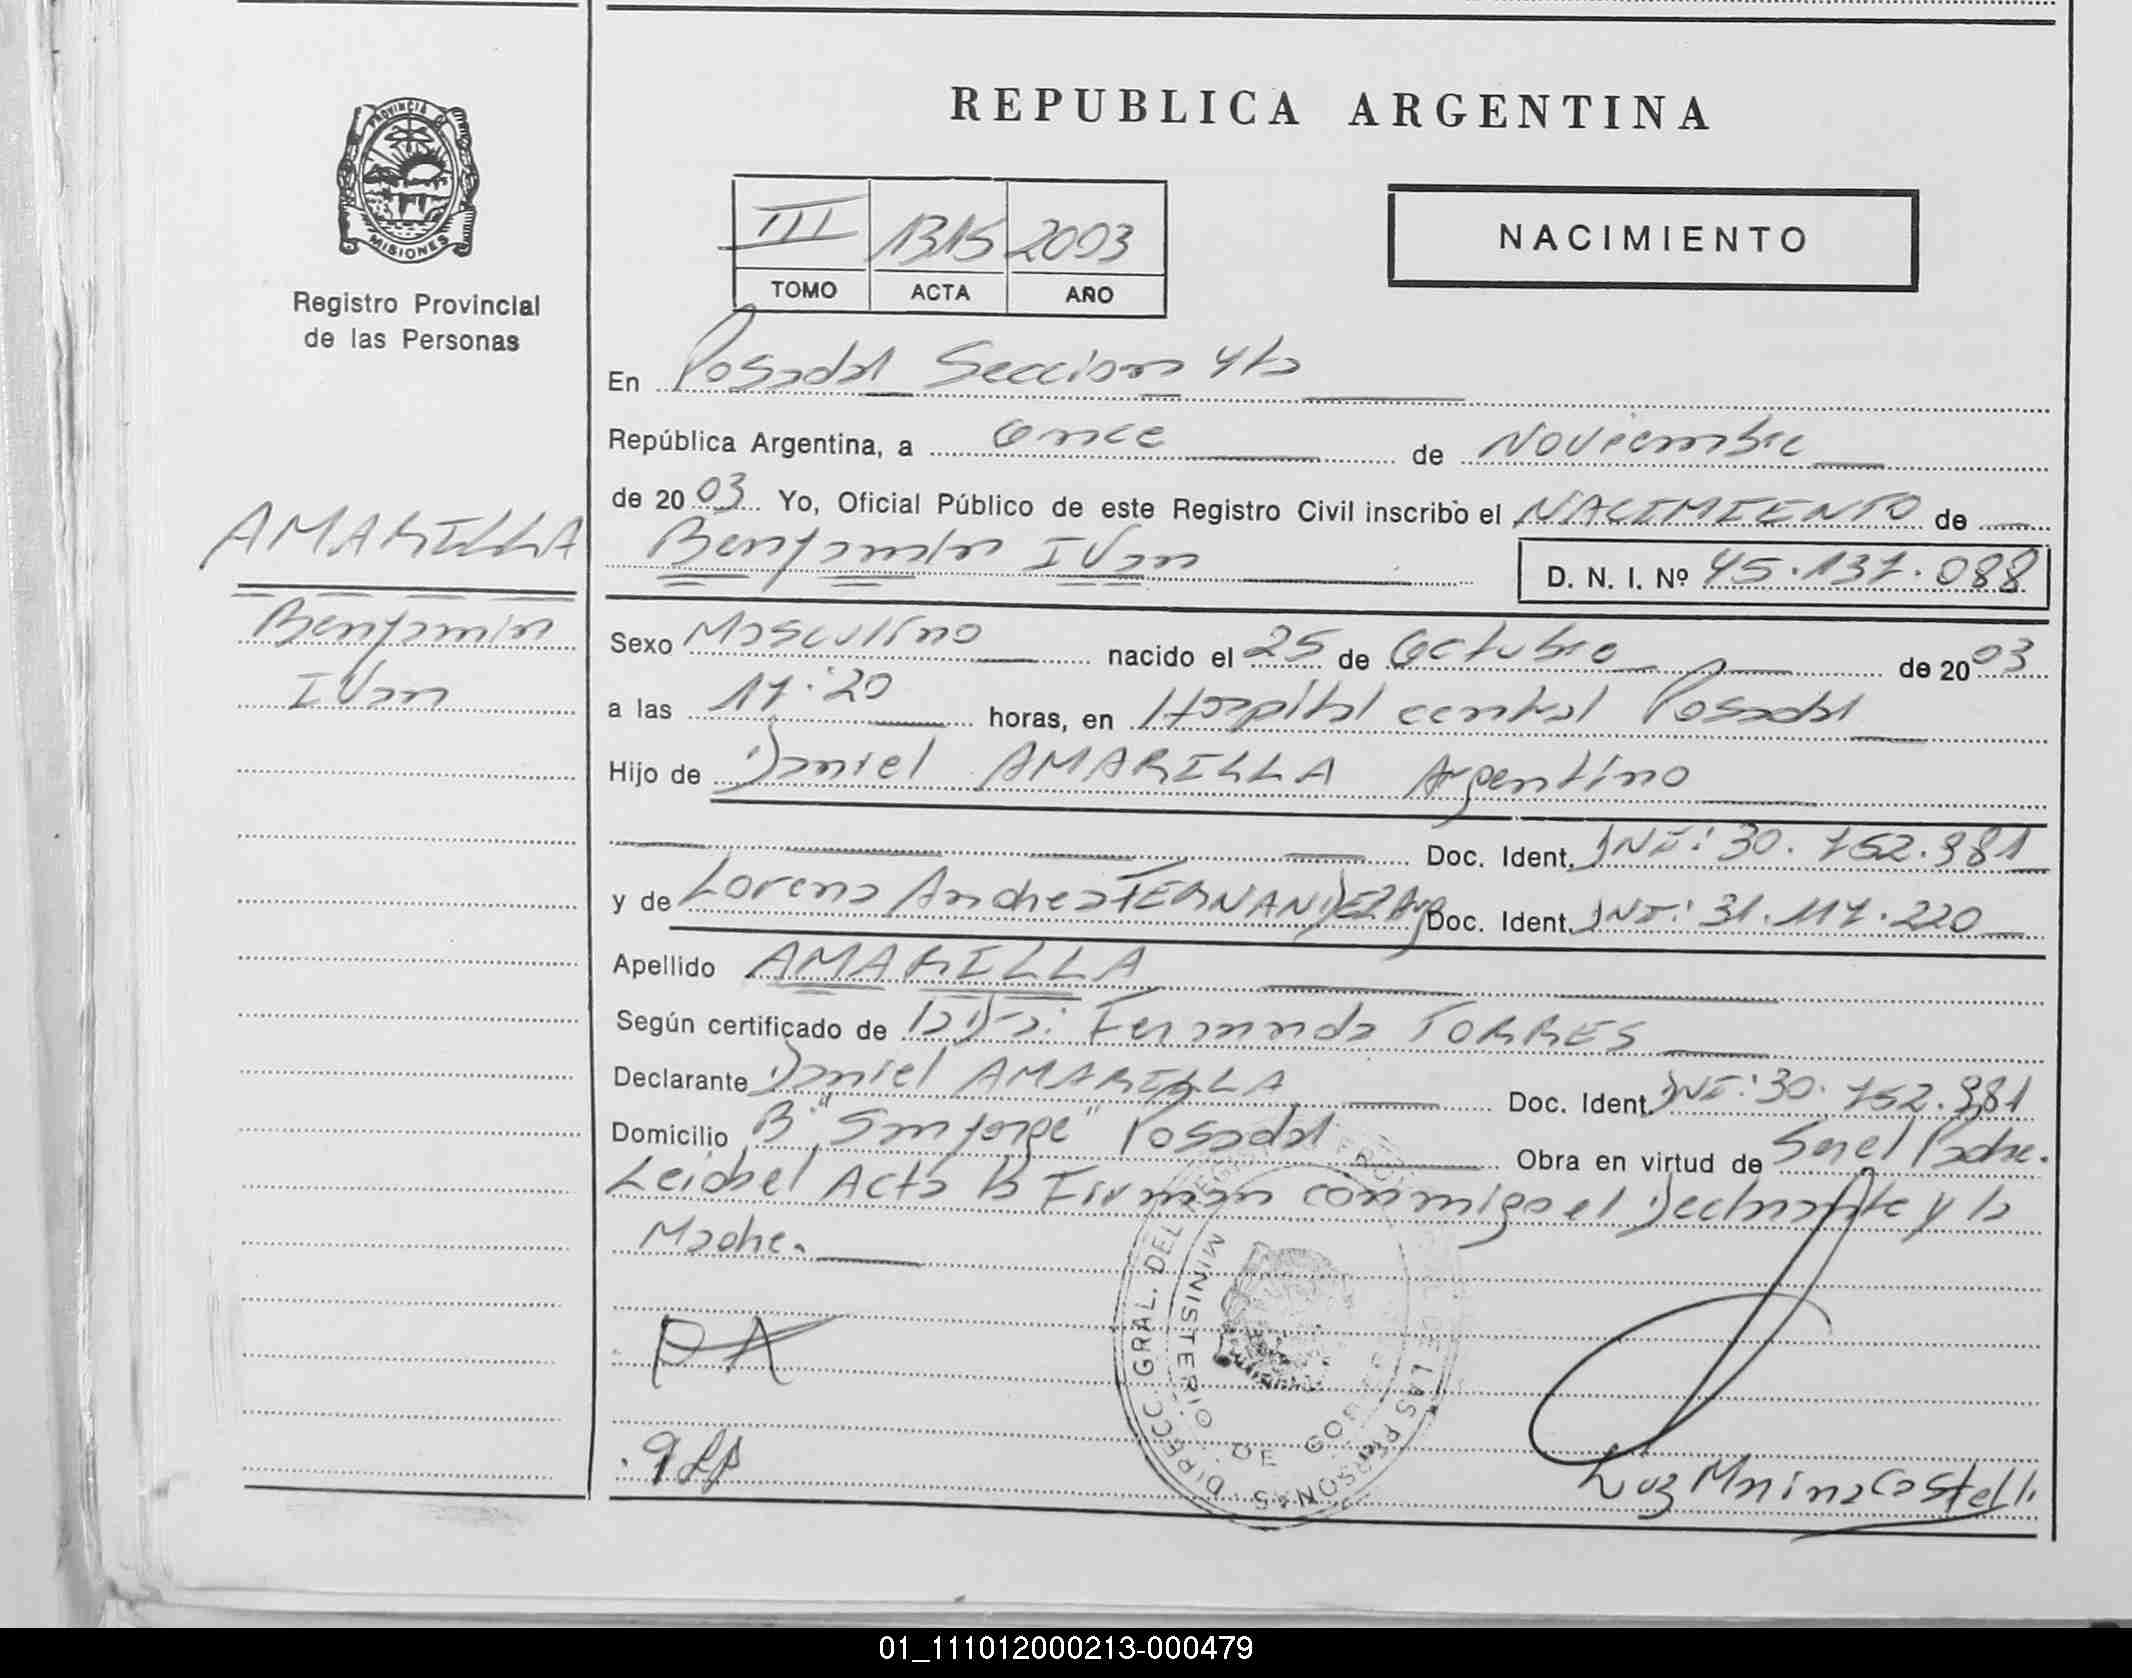 REPUBLICA ARGENTINA
PROVINCIA DE
MISIONES
Registro Provincial
de las Personas
III 1315 2003
TOMO ACTA AÑO
NACIMIENTO
En Posadas Seccion 4ta
República Argentina, a once de Noviembre
de 2003 Yo, Oficial Público de este Registro Civil inscribo el NACIMIENTO de
Benjamin Ivan D. N. I. Nº 45.137.088
AMARILLA
Benjamin
Ivan
Sexo Masculino nacido el 25 de Octubre de 2003
a las 17:20 horas, en Hospital central Posadas
Hijo de Daniel AMARILLA Argentino
Doc. Ident. DNI: 30.752.981
y de Lorena Andrea FERNANDEZ Arg Doc. Ident. DNI: 31.117.220
Apellido AMARILLA
Según certificado de Fernanda TORRES
Declarante Daniel AMARILLA Doc. Ident. DNI: 30.752.981
Domicilio B "San Jorge" Posadas Obra en virtud de Ser el Padre.
Leida el Acta la Firman conmigo el Declarante y la
Madre.
DIRECC. GRAL. DEL REGISTRO PROV. DE LAS PERSONAS
MINISTERIO DE GOB
PA
Luz Marina Castelli
01_111012000213-000479